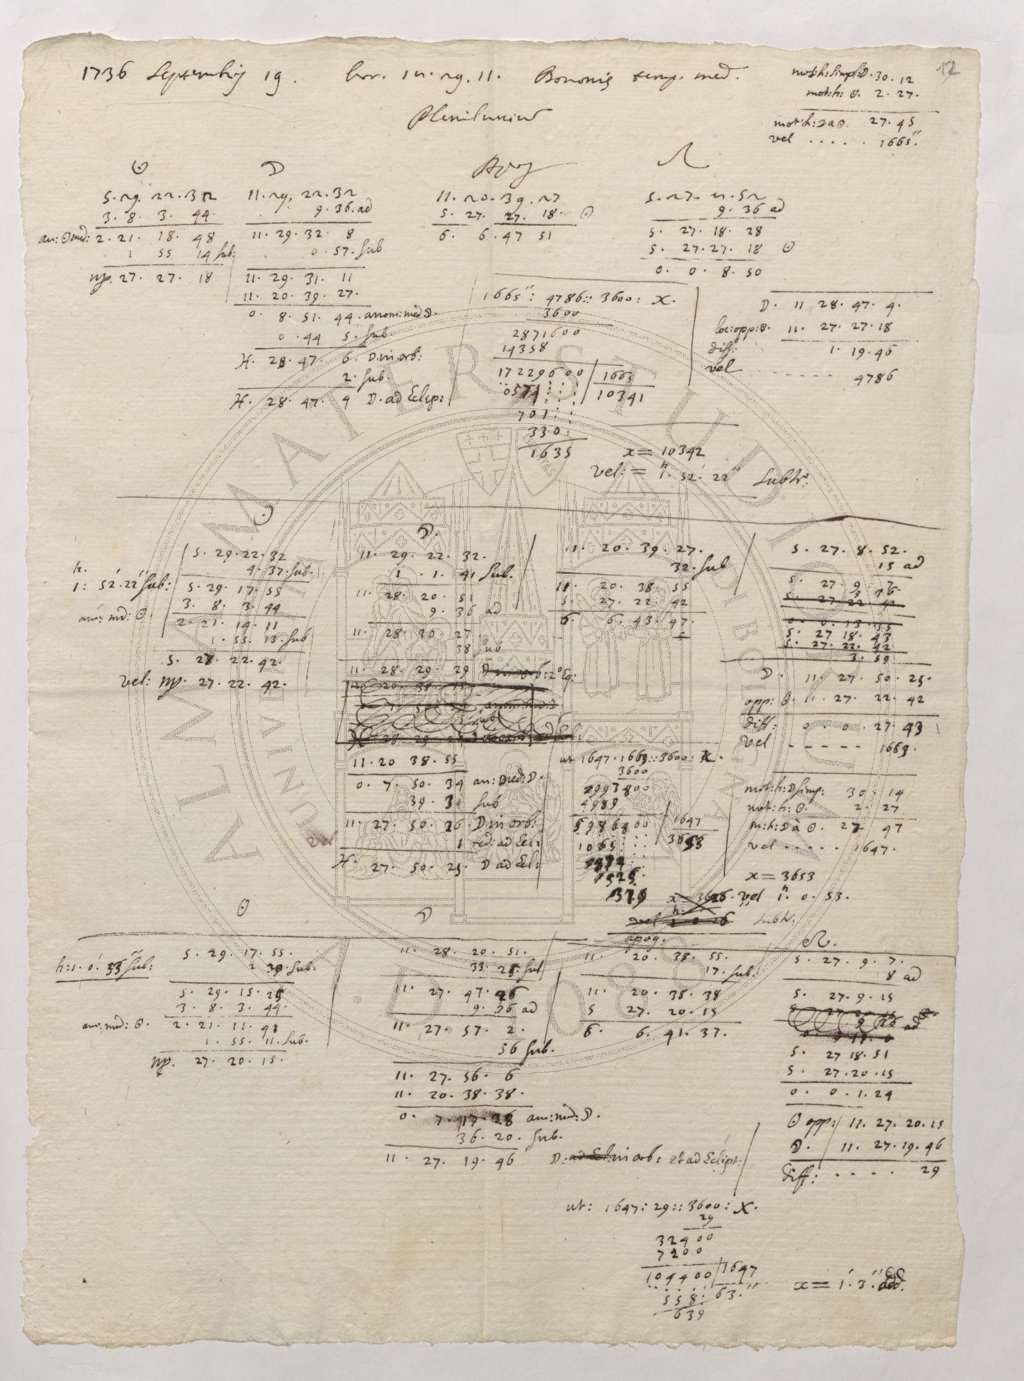 1736 Septembris 19. hor. 14. 29. 11. Bononiæ temp. med.
12
Plenilunium
mot: h: simpl: ☽. 30. 12
mot: h: ☉. 2. 27.
mot: h: ☽ a ☉. 27. 45
vel ..... 1665″.
☉
5. 29. 22. 32
3. 8. 3. 44.
an: ☉ med: 2. 21. 18. 48
1 55 14 sub:
♍. 27. 27. 18
☽
11. 29. 22. 32
9. 36. ad
11. 29. 32. 8
0. 57. sub
11. 29. 31. 11
11. 20. 39. 27.
0. 8. 51. 44. anom: med ☽.
0. 44 5. sub.
♓. 28. 47. 6. ☽ in orb:
2. sub:
♓. 28. 47. 4 ☽. ad Eclip:
Apog
11. 20. 39. 27
5. 27. 27. 18. ☉
6. 6. 47 51
☊
5. 27. 21. 52
9. 36 ad
5. 27. 18. 28
5. 27. 27. 18 ☉
0. 0. 8. 50
1665″: 4786:: 3600: x.
3600
2871600
14358
17229600 1665
0574 10341
701
330
1635
x = 10342
vel: = 1. 52. 22 subtr:
☽. 11 28. 47. 4.
loc: opp: ☉. 11. 27. 27. 18
diff: 1. 19. 46
vel ....... 4786
☉
h.
1: 52. 22 sub:
5. 29. 22. 32
4. 37. sub.
5. 29. 17. 55
an: md: ☉. 3. 8. 3. 44
2. 21. 14. 11
1. 55. 13. sub
5. 27. 22. 42.
vel: ♍. 27. 22. 42.
☽.
11. 29. 22. 32.
1. 1. 41 sub.
11. 28. 20. 51
9. 36 ad
11. 28. 30. 27
38 sub
11. 28. 29. 29
11. 20 38. 55
0. 7. 50. 34 an: med: ☽.
39. 3 sub
11. 27. 50. 26 ☽ in orb:
1 red: ad Ecl:
♓. 27. 50. 25. ☽ ad Ecl:
11. 20. 39. 27.
32. sub
11. 20. 38. 55
5. 27. 22. 42
6. 6. 43. 47.
5. 27. 8. 52.
15 ad
5. 27. 9. 7
5. 27 18. 43
5. 27. 22. 42
3. 59
☽. 11. 27. 50. 25.
opp: ☉. 11. 27. 22. 42
diff: 0. 0. 27. 43
vel ------ 1663.
ut 1647. 1663:: 3600: x.
3600
997800
4989
5986800 1647
1065
x = 3653
vel 1. 0. 53.
subtr.
mot: h: ☽ simp: 30. 14
mot: h: ☉. 2. 27
m: h: ☽ à ☉. 27 47
vel ..... 1647.
☉
h: 1. 0. 53 sub:
5. 29. 17. 55.
2 30. sub.
5. 29. 15. 25
3. 8. 3. 44.
an: md: ☉. 2. 21. 11. 41
1. 55. 11. sub.
♍. 27. 20. 15.
☽
11. 28. 20. 51.
33 25 sub
11. 27. 47. 26
9. 36 ad
11. 27. 57. 2.
56 sub.
11. 27. 56. 6
11. 20. 38. 38.
0. 7. 17. 28 an: med: ☽.
36. 20. sub.
11. 27. 19. 46 ☽: in orb: et ad Eclipt:
apog.
11. 20. 38. 55.
17. sub.
11. 20. 38. 38
5 27. 20. 15
6. 6. 41. 37.
☊.
5. 27. 9. 7.
8 ad
5. 27. 9. 15
5. 27 18. 51
5. 27. 20. 15
0. 0. 1. 24
☉ opp: 11. 27. 20. 15
☽. 11. 27. 19. 46
diff: .... 29
ut: 1647: 29:: 3600: x.
29
32400
7200
104400 1647
558: 63.″
639
x = 1. 3.″ ad.